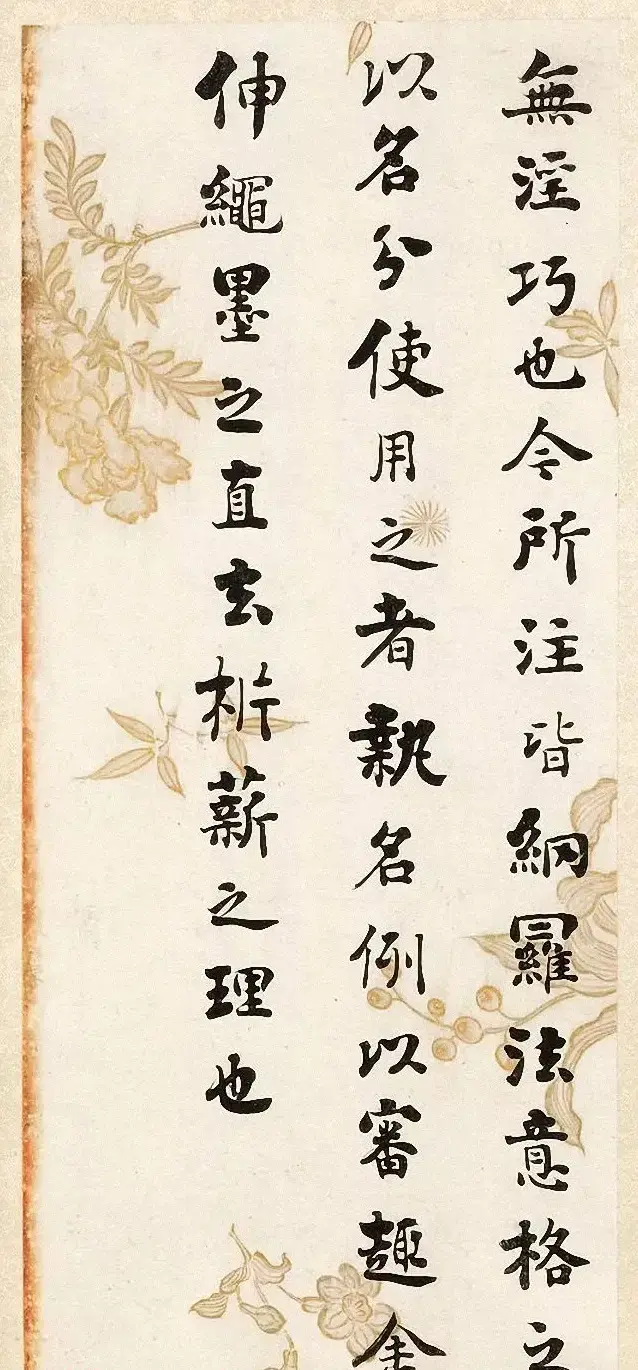 無淫巧也今所注皆綱羅法意格之
以名分使用之者執名例以審趣舍
伸繩墨之直去析薪之理也